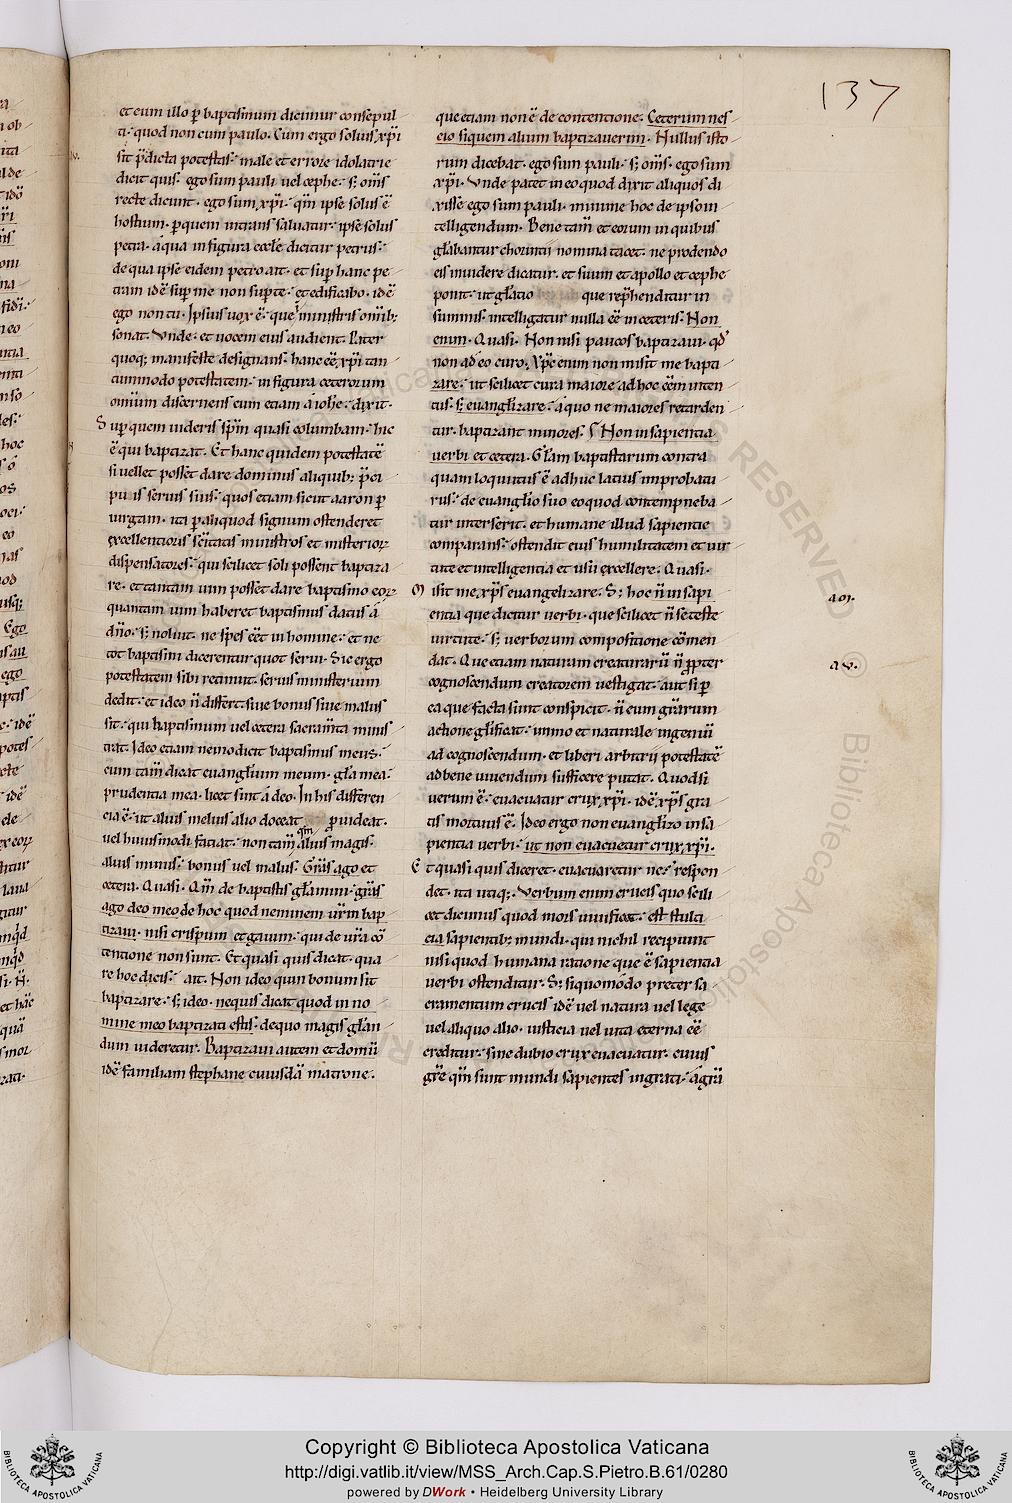 137
et cum illo p̱ baptismum dicimur consepul
ti· quod non cum paulo. Cum ergo solius xp̄i
sit p̄dicta potestas· male et errore idolatrie
dicit quis· ego sum pauli uel cephe· s; om̄s
recte dicunt· ego sum xp̄i· qm̄ ipse solus ē
hostium· p̱ quem intrans saluatur· ipse solus
petra· a qua in figura eccl̄e dicitur petrus·
de qua ipse eidem petro ait· et sup̱ hanc pe
tram idē sup̱ me non sup̱ te· et edificabo· idē
ego non tu. Ipsius uox ē· que ministris omib;
sonat. Vnde· et uocem eius audient. Pariter
quoq; manifeste designans· hanc eē xp̄i tan
tummodo potestatem· in figura ceterorum
omium discernens eum etiam a ioh̄e· dixit·
Sup̱ quem uideris sp̄m quasi columbam· hic
ē qui baptizat. Et hanc quidem potestatē
si uellet posset dare dominus aliquib; p̄ci
puis seruis suis· quos etiam sicut aaron p̱
uirgam· ita p̱ aliquod signum ostenderet
excellentioris sc̄itatis ministros et misterioꝝ
dispensatores· qui scilicet soli possent baptiza
re· et tantam uim posset dare baptismo eoꝝ
quantam uim haberet baptismus datus a
dn̄o· s; noluit· ne spes eēt in homine· et ne
tot baptismi dicerentur quot serui. Sic ergo
potestatem sibi retinuit· seruis ministerium
dedit· et ideo n̄ differt siue bonus siue malus
sit· qui baptismum uel cetera sacram̄ta minis
trat. Ideo etiam nemo dicit baptismus meus·
cum tam̄ dicat euangl̄ium meum· gl̄a mea·
prudentia mea· licet sint a deo. In his differen
cia ē· ut alius melius alio doceat p̱uideat·
uel huiusmodi faciat· non tam̄ qm̄ alius magis·
alius minus· bonus uel malus· Grās ago et
cetera. Quasi. Qm̄ de baptistis gl̄amini· grās
ago deo meo de hoc quod neminem ur̄m bap
tizaui· nisi crispum et gaium· qui de ur̄a cō
tentione non sunt. Et quasi quis dicat· qua
re hoc dicis· ait. Non ideo quin bonum sit
baptizare· s; ideo· nequis dicat quod in no
mine meo baptizati estis· de quo magis gl̄an
dum uideretur. Baptizaui autem et domū
idē familiam stephane cuiusdā matrone.
que etiam non ē de contentione. Ceterum nes
cio siquem alium baptizauerim. Nullus isto
rum dicebat· ego sum pauli· s; om̄s· ego sum
xp̄i. Vnde patet in eo quod dixit aliquos di
xisse ego sum pauli· minime hoc de ipso in
telligendum. Bene tam̄ et eorum in quibus
gl̄abantur chorintii nomina tacet· ne prodendo
eis inuidere dicatur· et suum et apollo et cephe
ponit· ut gl̄atio que rep̱henditur in
summis· intelligatur nulla eē in ceteris. Non
enim. Quasi. Non nisi paucos baptizaui· qd̄
non adeo curo. Xp̄c enim non misit me bapti
zare· ut scilicet cura maiore ad hoc eēm inten
tus· s; euangl̄izare· a quo ne maiores retarden
tur· baptizant minores. Non in sapientia
uerbi et cetera. Gl̄am baptistarum contra
quam loquutus ē adhuc latius improbatu
rus· de euangl̄io suo eo quod contempneba
tur interserit· et humane illud sapientie
comparans· ostendit eius humilitatem et uir
tute et intelligentia et usu excellere. Quasi.
Misit me xp̄s euangelizare. S; hoc n̄ in sapi
aoṛ.
entia que dicitur uerbi· que scilicet n̄ se teste
uirtute· s; uerborum compositione cōmen
dat. Que etiam naturam creaturarū n̄ p̱pter
av.
cognoscendum creatorem uestigat· aut si p̱
ea que facta sunt conspicit· n̄ eum gr̄arum
actione gl̄ificat· immo et naturale ingeniū
ad cognoscendum· et liberi arbitrii potestatē
ad bene uiuendum sufficere putat. Quod si
uerum ē· euacuatur crux xp̄i· idē xp̄s gra
tis mortuus ē. Ideo ergo non euangl̄izo in sa
pientia uerbi· ut non euacuetur crux xp̄i.
Et quasi quis diceret· euacuaretur ne· respon
det· ita utiq;. Verbum enim crucis quo scili
cet dicimus quod mors uiuificet· est stulti
cia sapientib; mundi· qui nichil recipiunt
nisi quod humana ratione que ē sapientia
uerbi ostenditur. S; si quomodo preter sa
cramentum crucis idē uel natura uel lege
uel aliquo alio· iusticia uel uita eterna eē
creditur· sine dubio crux euacuatur· cuius
gr̄e qm̄ sunt mundi sapientes ingrati· a gr̄a
Copyright © Biblioteca Apostolica Vaticana
http://digi.vatlib.it/view/MSS_Arch.Cap.S.Pietro.B.61/0280
powered by DWork • Heidelberg University Library